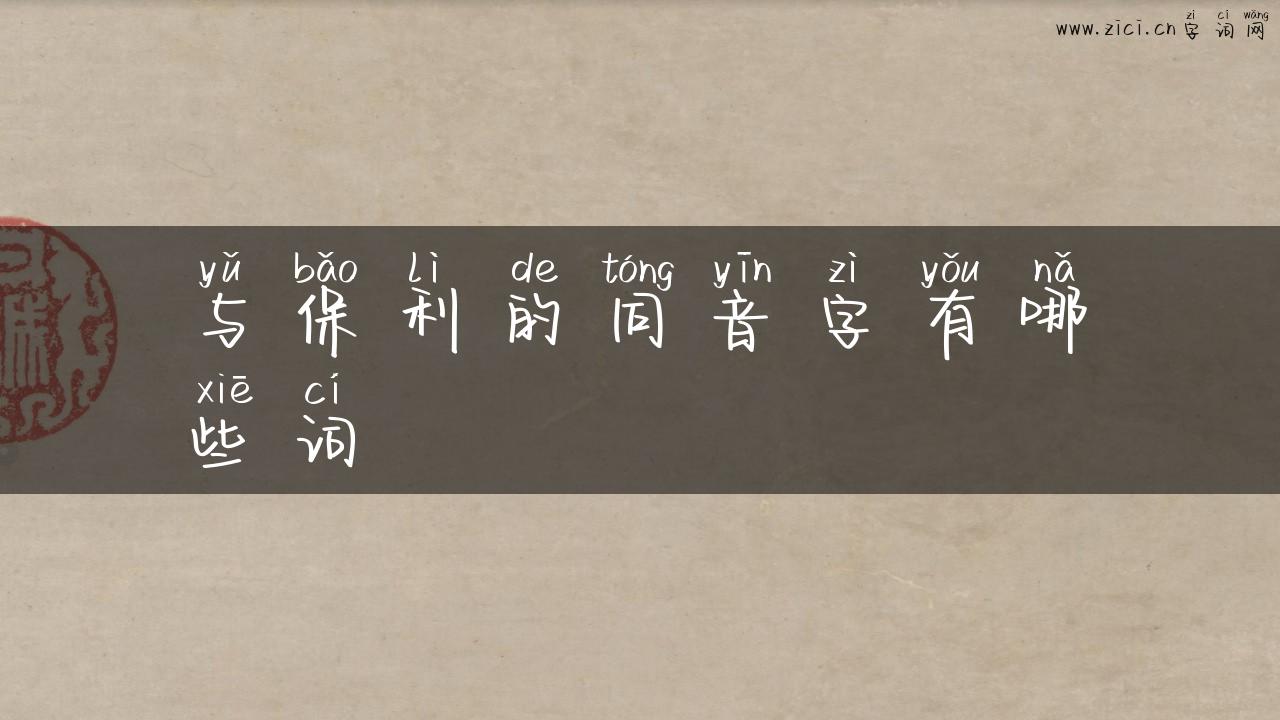 zì cí wǎng
www.zici.cn 字词网
yǔ bǎo lì de tóng yīn zì yǒu nǎ
与保利的同音字有哪
xiē cí
些词